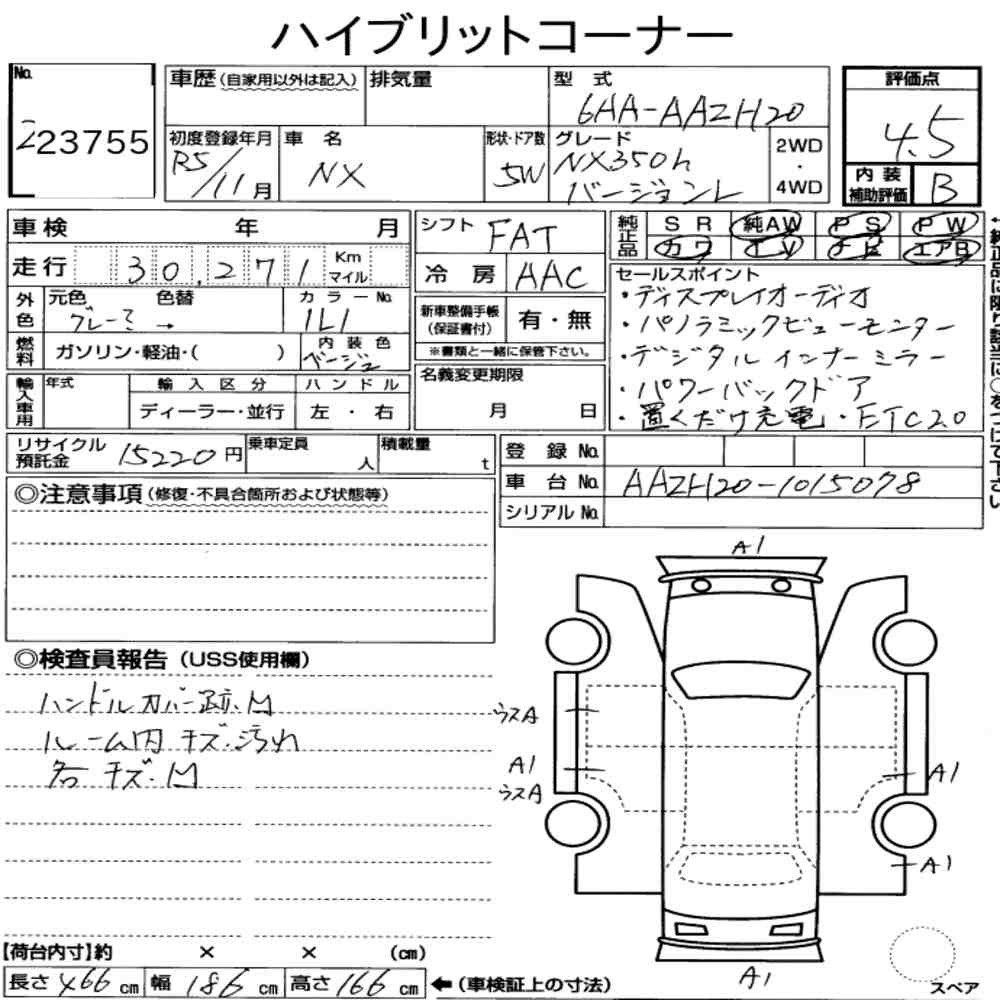 ハイブリットコーナー
No.
223755
車歴(自家用以外は記入)
排気量
型 式
6AA-AAZH20
初度登録年月
R5/11月
車 名
NX
形状・ドア数
5W
グレード
NX350h
バージョンL
2WD
・
4WD
評価点
4.5
内 装
補助評価
B
車検 年 月
走行 30,271 Km
マイル
外色
元色 色替
グレーコ →
カラーNo.
1L1
燃料
ガソリン・軽油・( )
内 装 色
ベージュ
輸入車用
年式
輸 入 区 分
ディーラー・並行
ハ ン ド ル
左 ・ 右
シフト FAT
冷 房 AAC
新車整備手帳
(保証書付)
有・無
※書類と一緒に保管下さい。
名義変更期限
月 日
純正品
SR 純AW PS PW
カワ TV ナビ エアB
セールスポイント
・ディスプレイオーディオ
・パノラミックビューモニター
・デジタルインナーミラー
・パワーバックドア
・置くだけ充電・ETC2.0
リサイクル
預託金
15220円
乗車定員
人
積載量
t
登 録 No.
車 台 No. AAZH20-1015078
シリアル No.
◎注意事項(修復・不具合箇所および状態等)
◎検査員報告(USS使用欄)
ハンドルカバー跡.M
ルーム内 キズ.汚れ
各キズ.M
A1
ウスA
A1
ウスA
A1
A1
A1
【荷台内寸】約 × × (cm)
長さ 466 cm 幅 186 cm 高さ 166 cm ←(車検証上の寸法)
スペア